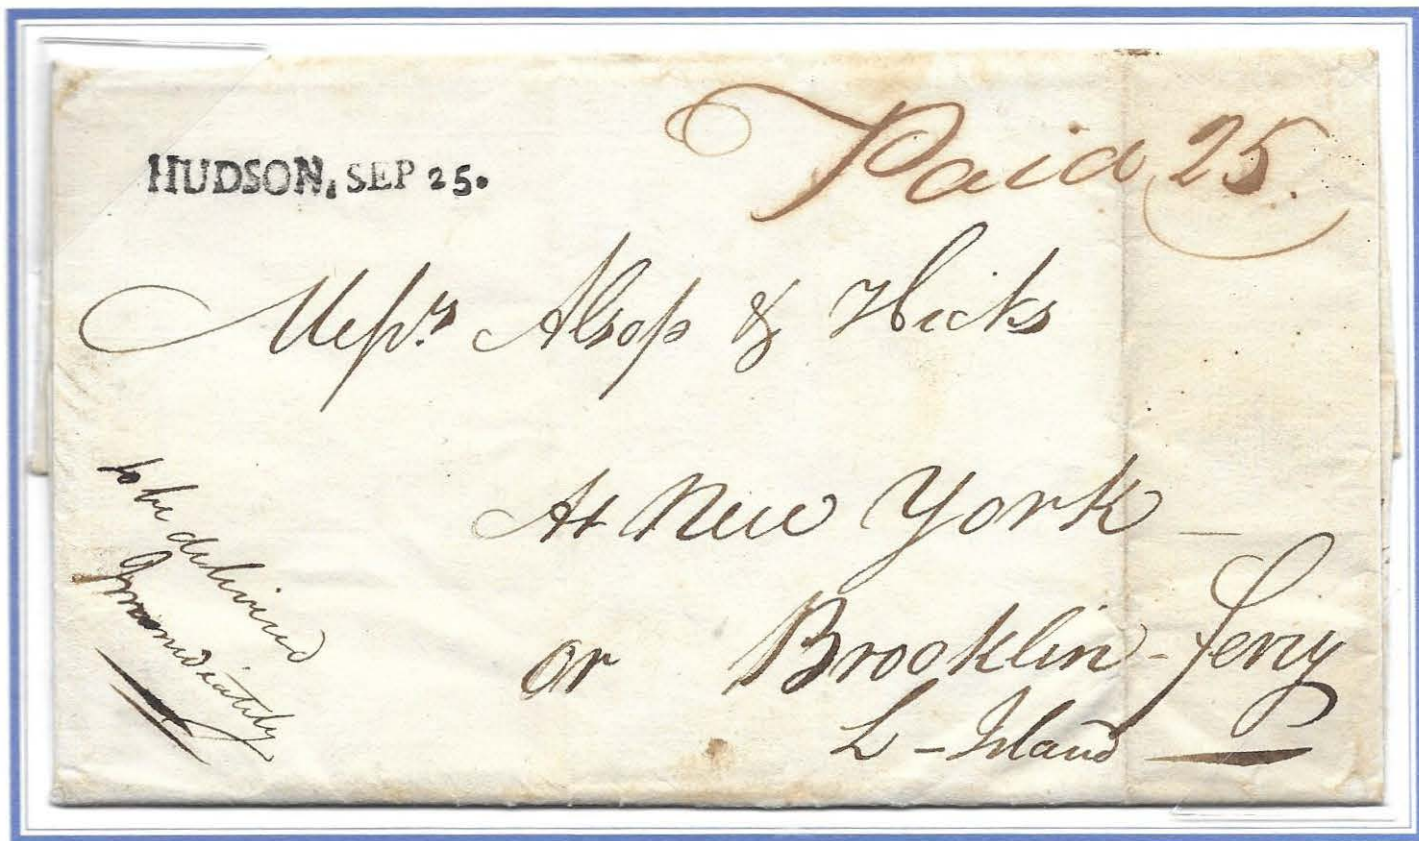 HUDSON, SEP 25.
Paid 25.
Messrs Alsop & Hicks
At New York
or Brooklin-ferry
L-Island
to be deliverd
Immediately